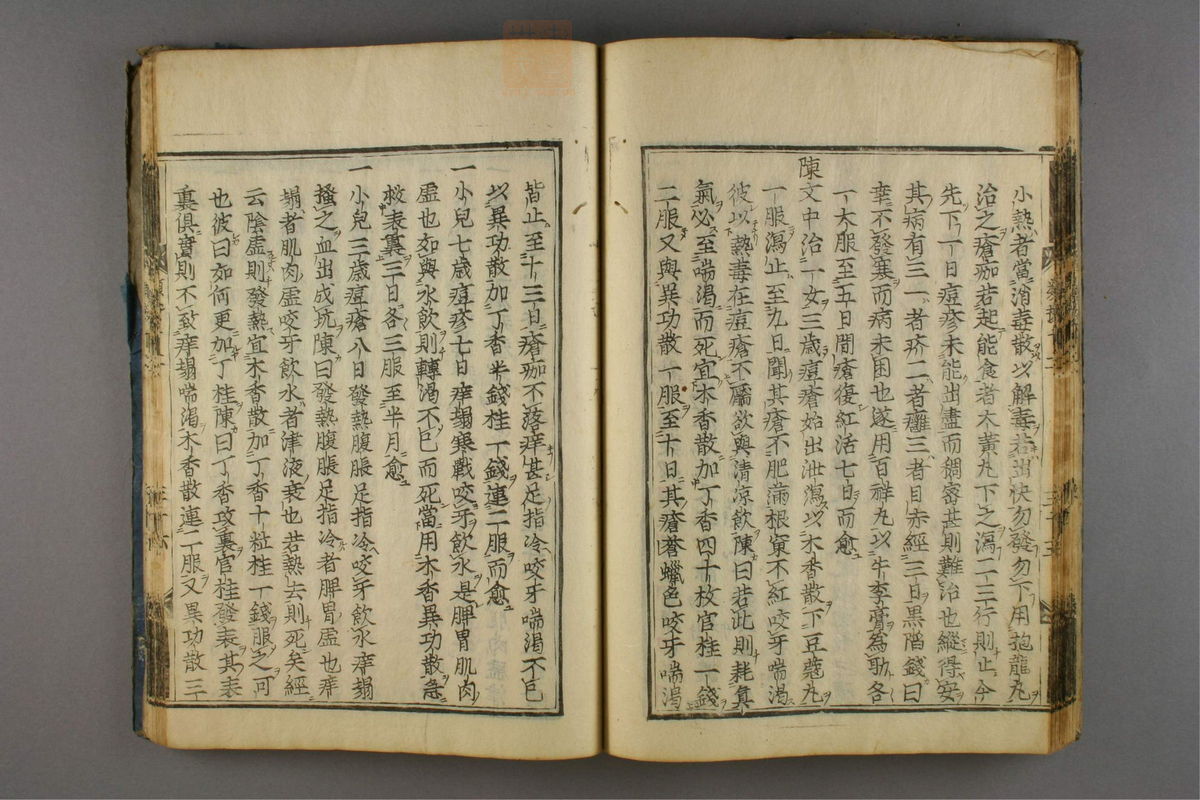 小熱者當消毒散以解毒若出快勿發勿下用抱龍丸
治之瘡痂若起能食者木黃丸下之瀉一二行則止今
先下一日痘疹未能出盡而稠密甚則難治也縱得安
其病有三一者疥二者癰三者目赤經三日黑陷錢曰
幸不發寒而病未困也遂用百祥丸以牛李膏爲助各
一大服至五日間瘡復紅活七日而愈
陳文中治一女三歲痘瘡始出泄瀉以木香散下豆蔻丸
一服瀉止至九日聞其瘡不肥滿根窠不紅咬牙喘渴
彼以熱毒在痘瘡不靨欲與清凉飲陳曰若此則耗眞
氣必至喘渴而死宜木香散加丁香四十枚官桂一錢
二服又與異功散一服至十日其瘡蒼蠟色咬牙喘渴
皆止至十三日瘡痂不落痒甚足指冷咬牙喘渴不已
以異功散加丁香半錢桂一錢連二服而愈
一小兒七歲痘疹七日痒塌寒戰咬牙飲水是脾胃肌肉
虛也如與水飲則轉渴不已而死當用木香異功散急
救表裏二日各三服至半月愈
一小兒三歲痘瘡八日發熱腹脹足指冷咬牙飲水痒塌
搔之血出成坑陳曰發熱腹脹足指冷者脾胃虛也痒
塌者肌肉虛咬牙飲水者津液衰也若熱去則死矣經
云陰虛則發熱宜木香散加丁香十粒桂一錢服之可
也彼曰如何更加丁桂陳曰丁香攻裏官桂發表其表
裏俱實則不致痒塌喘渴木香散連二服又異功散三